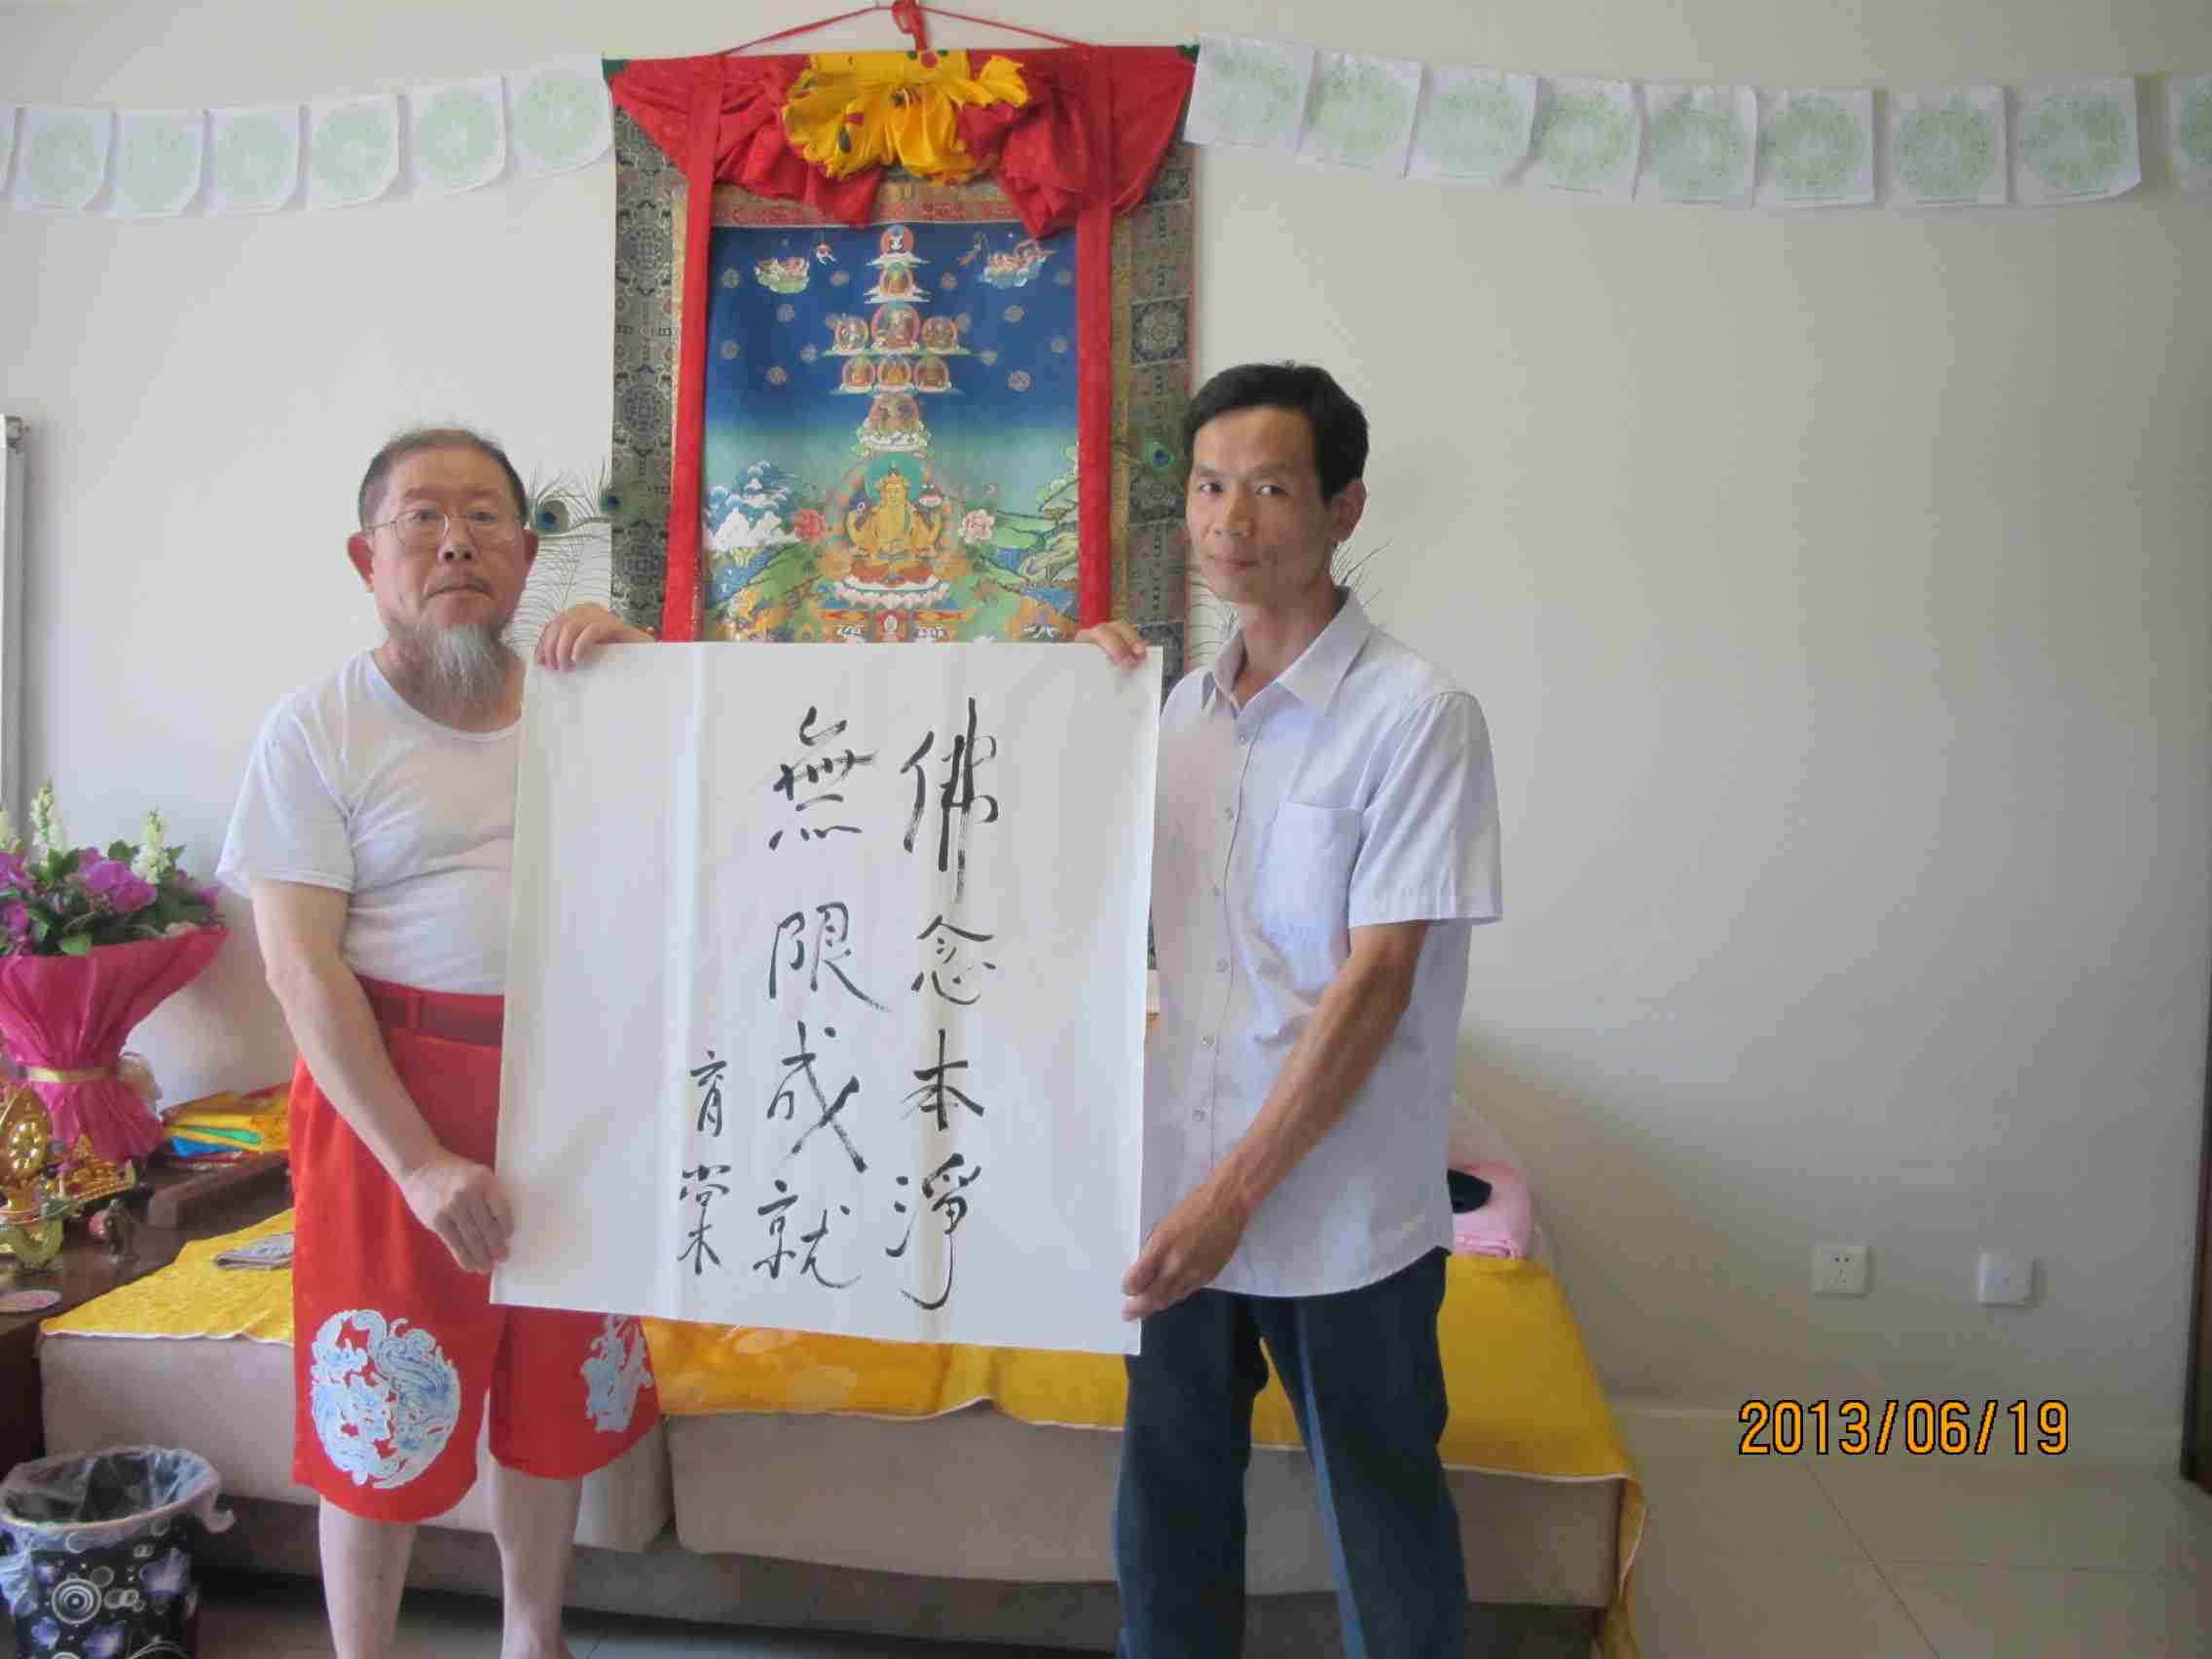 佛念本淨
無限成就
育棠
2013/06/19